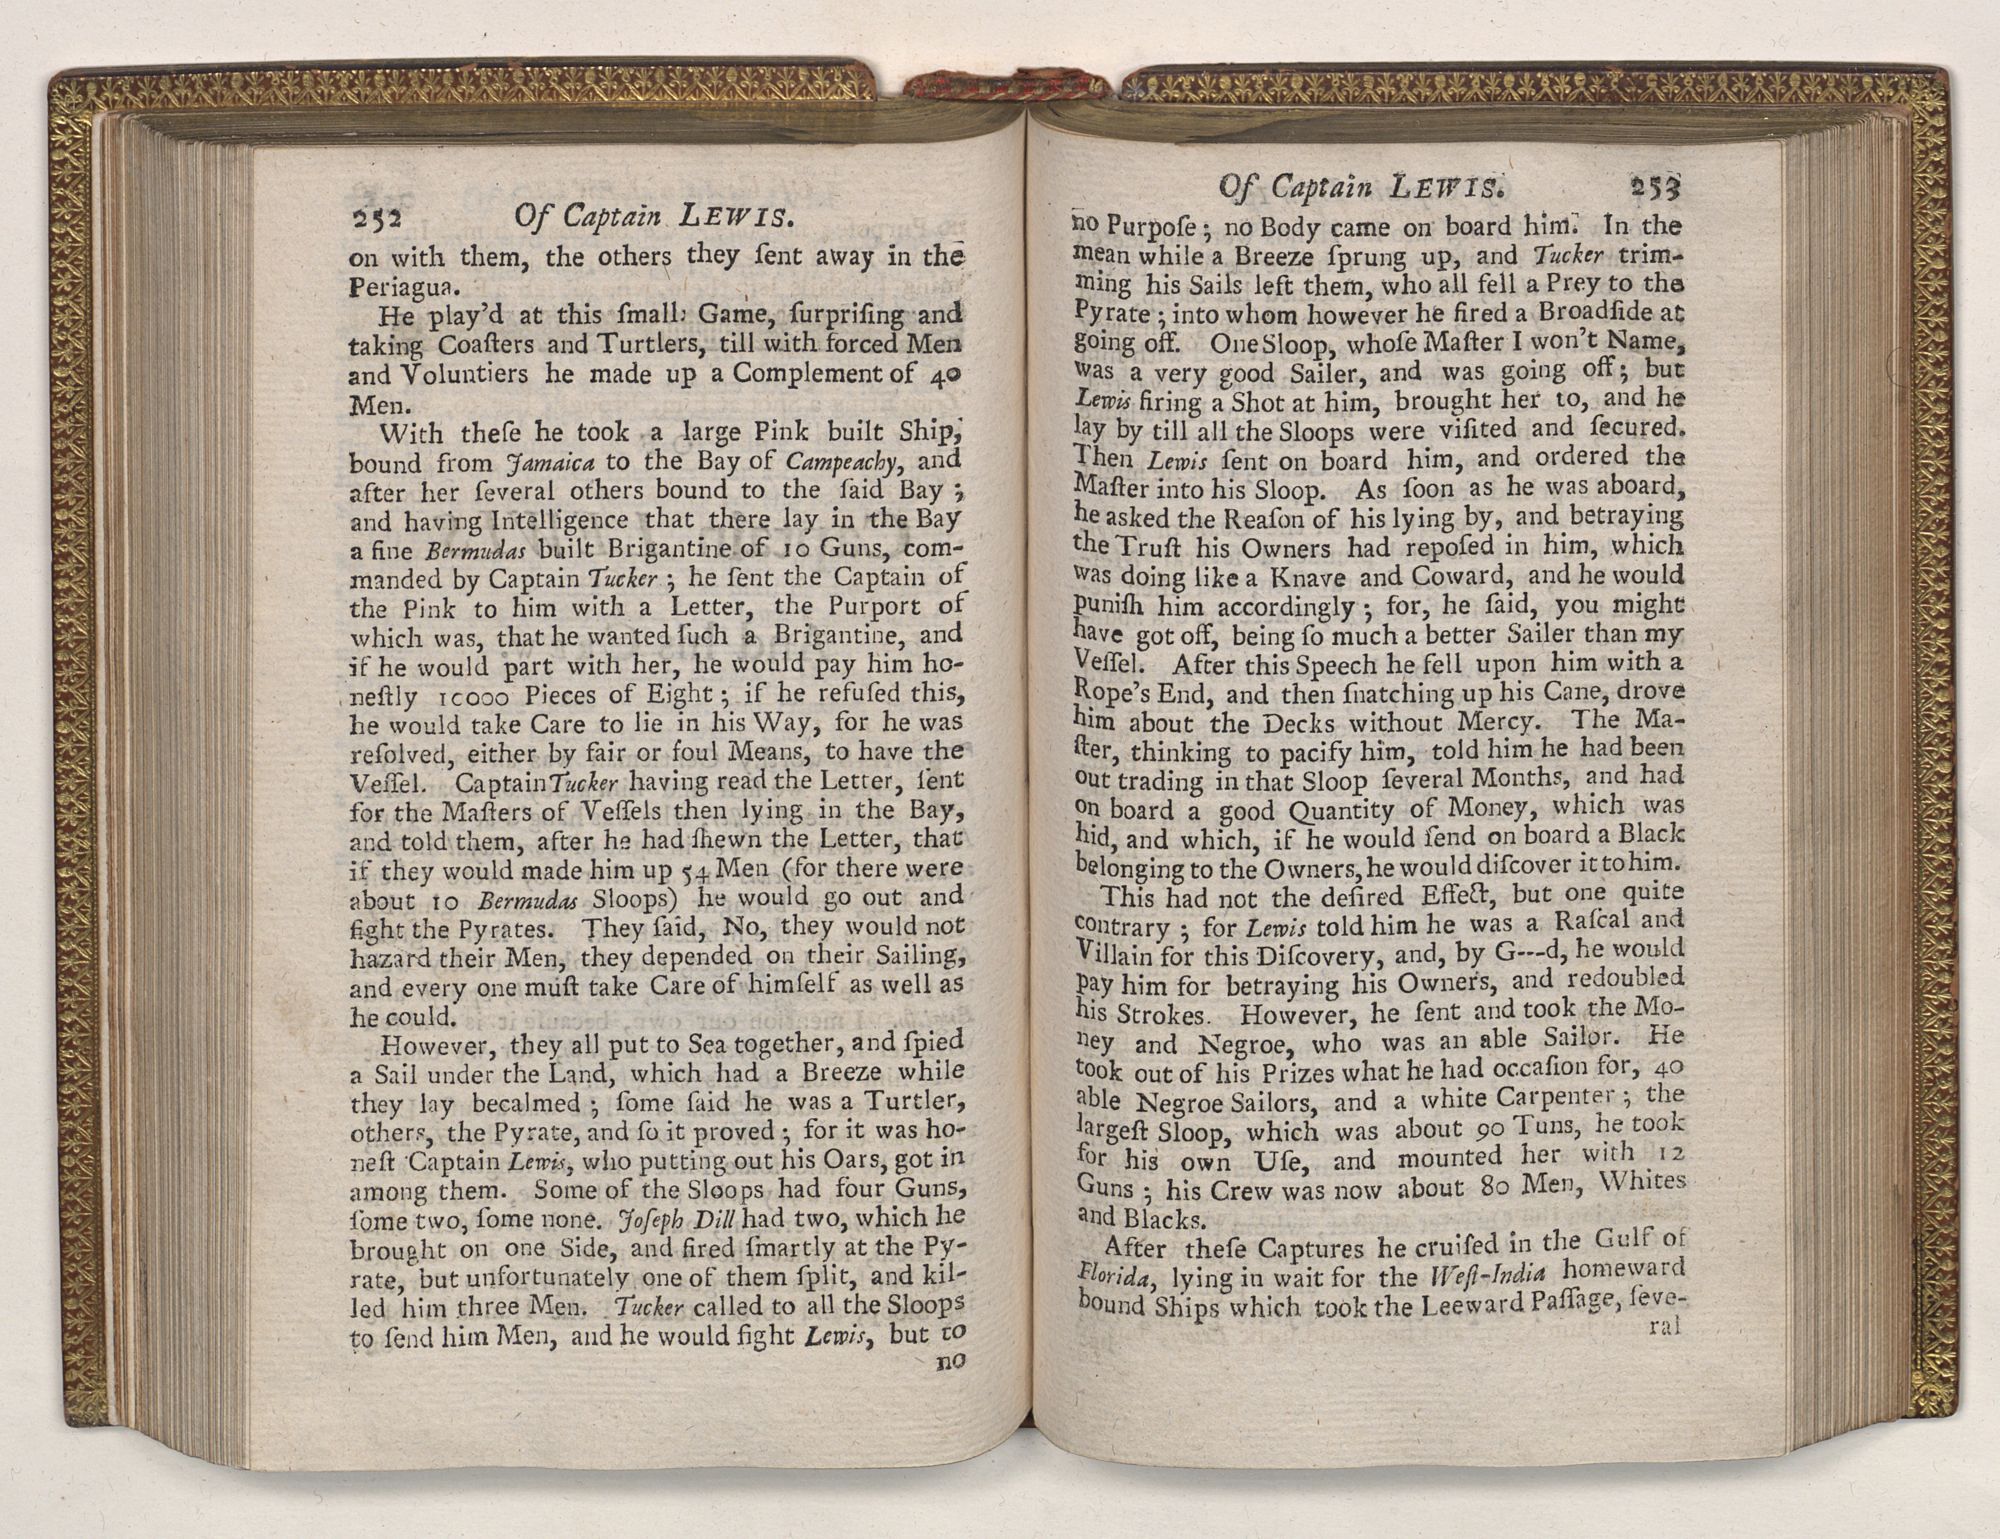 252 Of Captain LEWIS.
on with them, the others they ſent away in the
Periagua.
He play'd at this ſmall Game, ſurpriſing and
taking Coaſters and Turtlers, till with forced Men
and Voluntiers he made up a Complement of 40
Men.
With theſe he took a large Pink built Ship,
bound from Jamaica to the Bay of Campeachy, and
after her ſeveral others bound to the ſaid Bay ;
and having Intelligence that there lay in the Bay
a fine Bermudas built Brigantine of 10 Guns, com-
manded by Captain Tucker ; he ſent the Captain of
the Pink to him with a Letter, the Purport of
which was, that he wanted ſuch a Brigantine, and
if he would part with her, he would pay him ho-
neſtly 10000 Pieces of Eight ; if he refuſed this,
he would take Care to lie in his Way, for he was
reſolved, either by fair or foul Means, to have the
Veſſel. Captain Tucker having read the Letter, ſent
for the Maſters of Veſſels then lying in the Bay,
and told them, after he had ſhewn the Letter, that
if they would made him up 54 Men (for there were
about 10 Bermudas Sloops) he would go out and
fight the Pyrates. They ſaid, No, they would not
hazard their Men, they depended on their Sailing,
and every one muſt take Care of himſelf as well as
he could.
However, they all put to Sea together, and ſpied
a Sail under the Land, which had a Breeze while
they lay becalmed ; ſome ſaid he was a Turtler,
others, the Pyrate, and ſo it proved ; for it was ho-
neſt Captain Lewis, who putting out his Oars, got in
among them. Some of the Sloops had four Guns,
ſome two, ſome none. Joſeph Dill had two, which he
brought on one Side, and fired ſmartly at the Py-
rate, but unfortunately one of them ſplit, and kil-
led him three Men. Tucker called to all the Sloops
to ſend him Men, and he would fight Lewis, but to
no
Of Captain LEWIS. 253
no Purpoſe ; no Body came on board him. In the
mean while a Breeze ſprung up, and Tucker trim-
ming his Sails left them, who all fell a Prey to the
Pyrate ; into whom however he fired a Broadſide at
going off. One Sloop, whoſe Maſter I won't Name,
was a very good Sailer, and was going off ; but
Lewis firing a Shot at him, brought her to, and he
lay by till all the Sloops were viſited and ſecured.
Then Lewis ſent on board him, and ordered the
Maſter into his Sloop. As ſoon as he was aboard,
he asked the Reaſon of his lying by, and betraying
the Truſt his Owners had repoſed in him, which
was doing like a Knave and Coward, and he would
puniſh him accordingly ; for, he ſaid, you might
have got off, being ſo much a better Sailer than my
Veſſel. After this Speech he fell upon him with a
Rope's End, and then ſnatching up his Cane, drove
him about the Decks without Mercy. The Ma-
ſter, thinking to pacify him, told him he had been
out trading in that Sloop ſeveral Months, and had
on board a good Quantity of Money, which was
hid, and which, if he would ſend on board a Black
belonging to the Owners, he would diſcover it to him.
This had not the deſired Effect, but one quite
contrary ; for Lewis told him he was a Raſcal and
Villain for this Diſcovery, and, by G---d, he would
pay him for betraying his Owners, and redoubled
his Strokes. However, he ſent and took the Mo-
ney and Negroe, who was an able Sailor. He
took out of his Prizes what he had occaſion for, 40
able Negroe Sailors, and a white Carpenter ; the
largeſt Sloop, which was about 90 Tuns, he took
for his own Uſe, and mounted her with 12
Guns ; his Crew was now about 80 Men, Whites
and Blacks.
After theſe Captures he cruiſed in the Gulf of
Florida, lying in wait for the Weſt-India homeward
bound Ships which took the Leeward Paſſage, ſeve-
ral